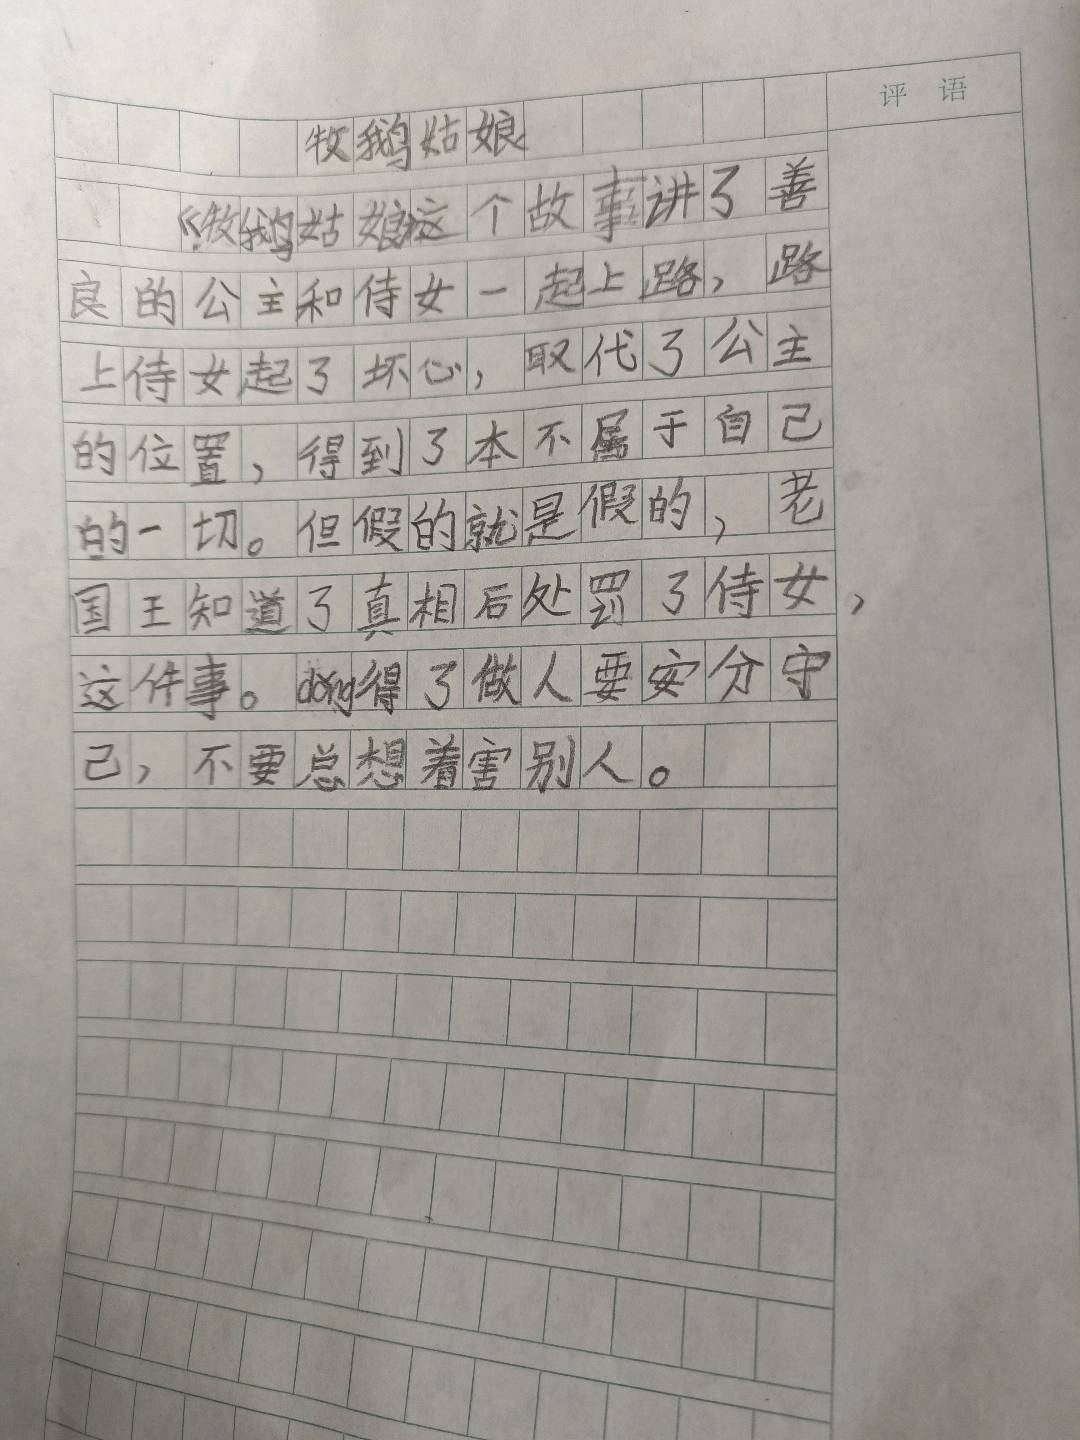 评 语
牧鹅姑娘
《牧鹅姑娘这个故事讲了善
良的公主和侍女一起上路，路
上侍女起了坏心，取代了公主
的位置，得到了本不属于自己
的一切。但假的就是假的，老
国王知道了真相后处罚了侍女，
这件事。dǒng得了做人要安分守
己，不要总想着害别人。